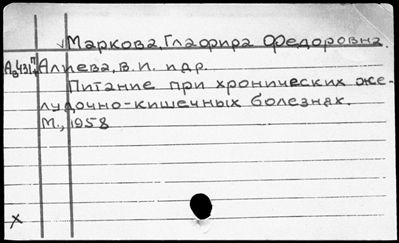 Маркова, Глафира Федоровна.
Алиева, В. И. и др.
Питание при хронических же-
лудочно-кишечных болезнях.
М., 1958
х